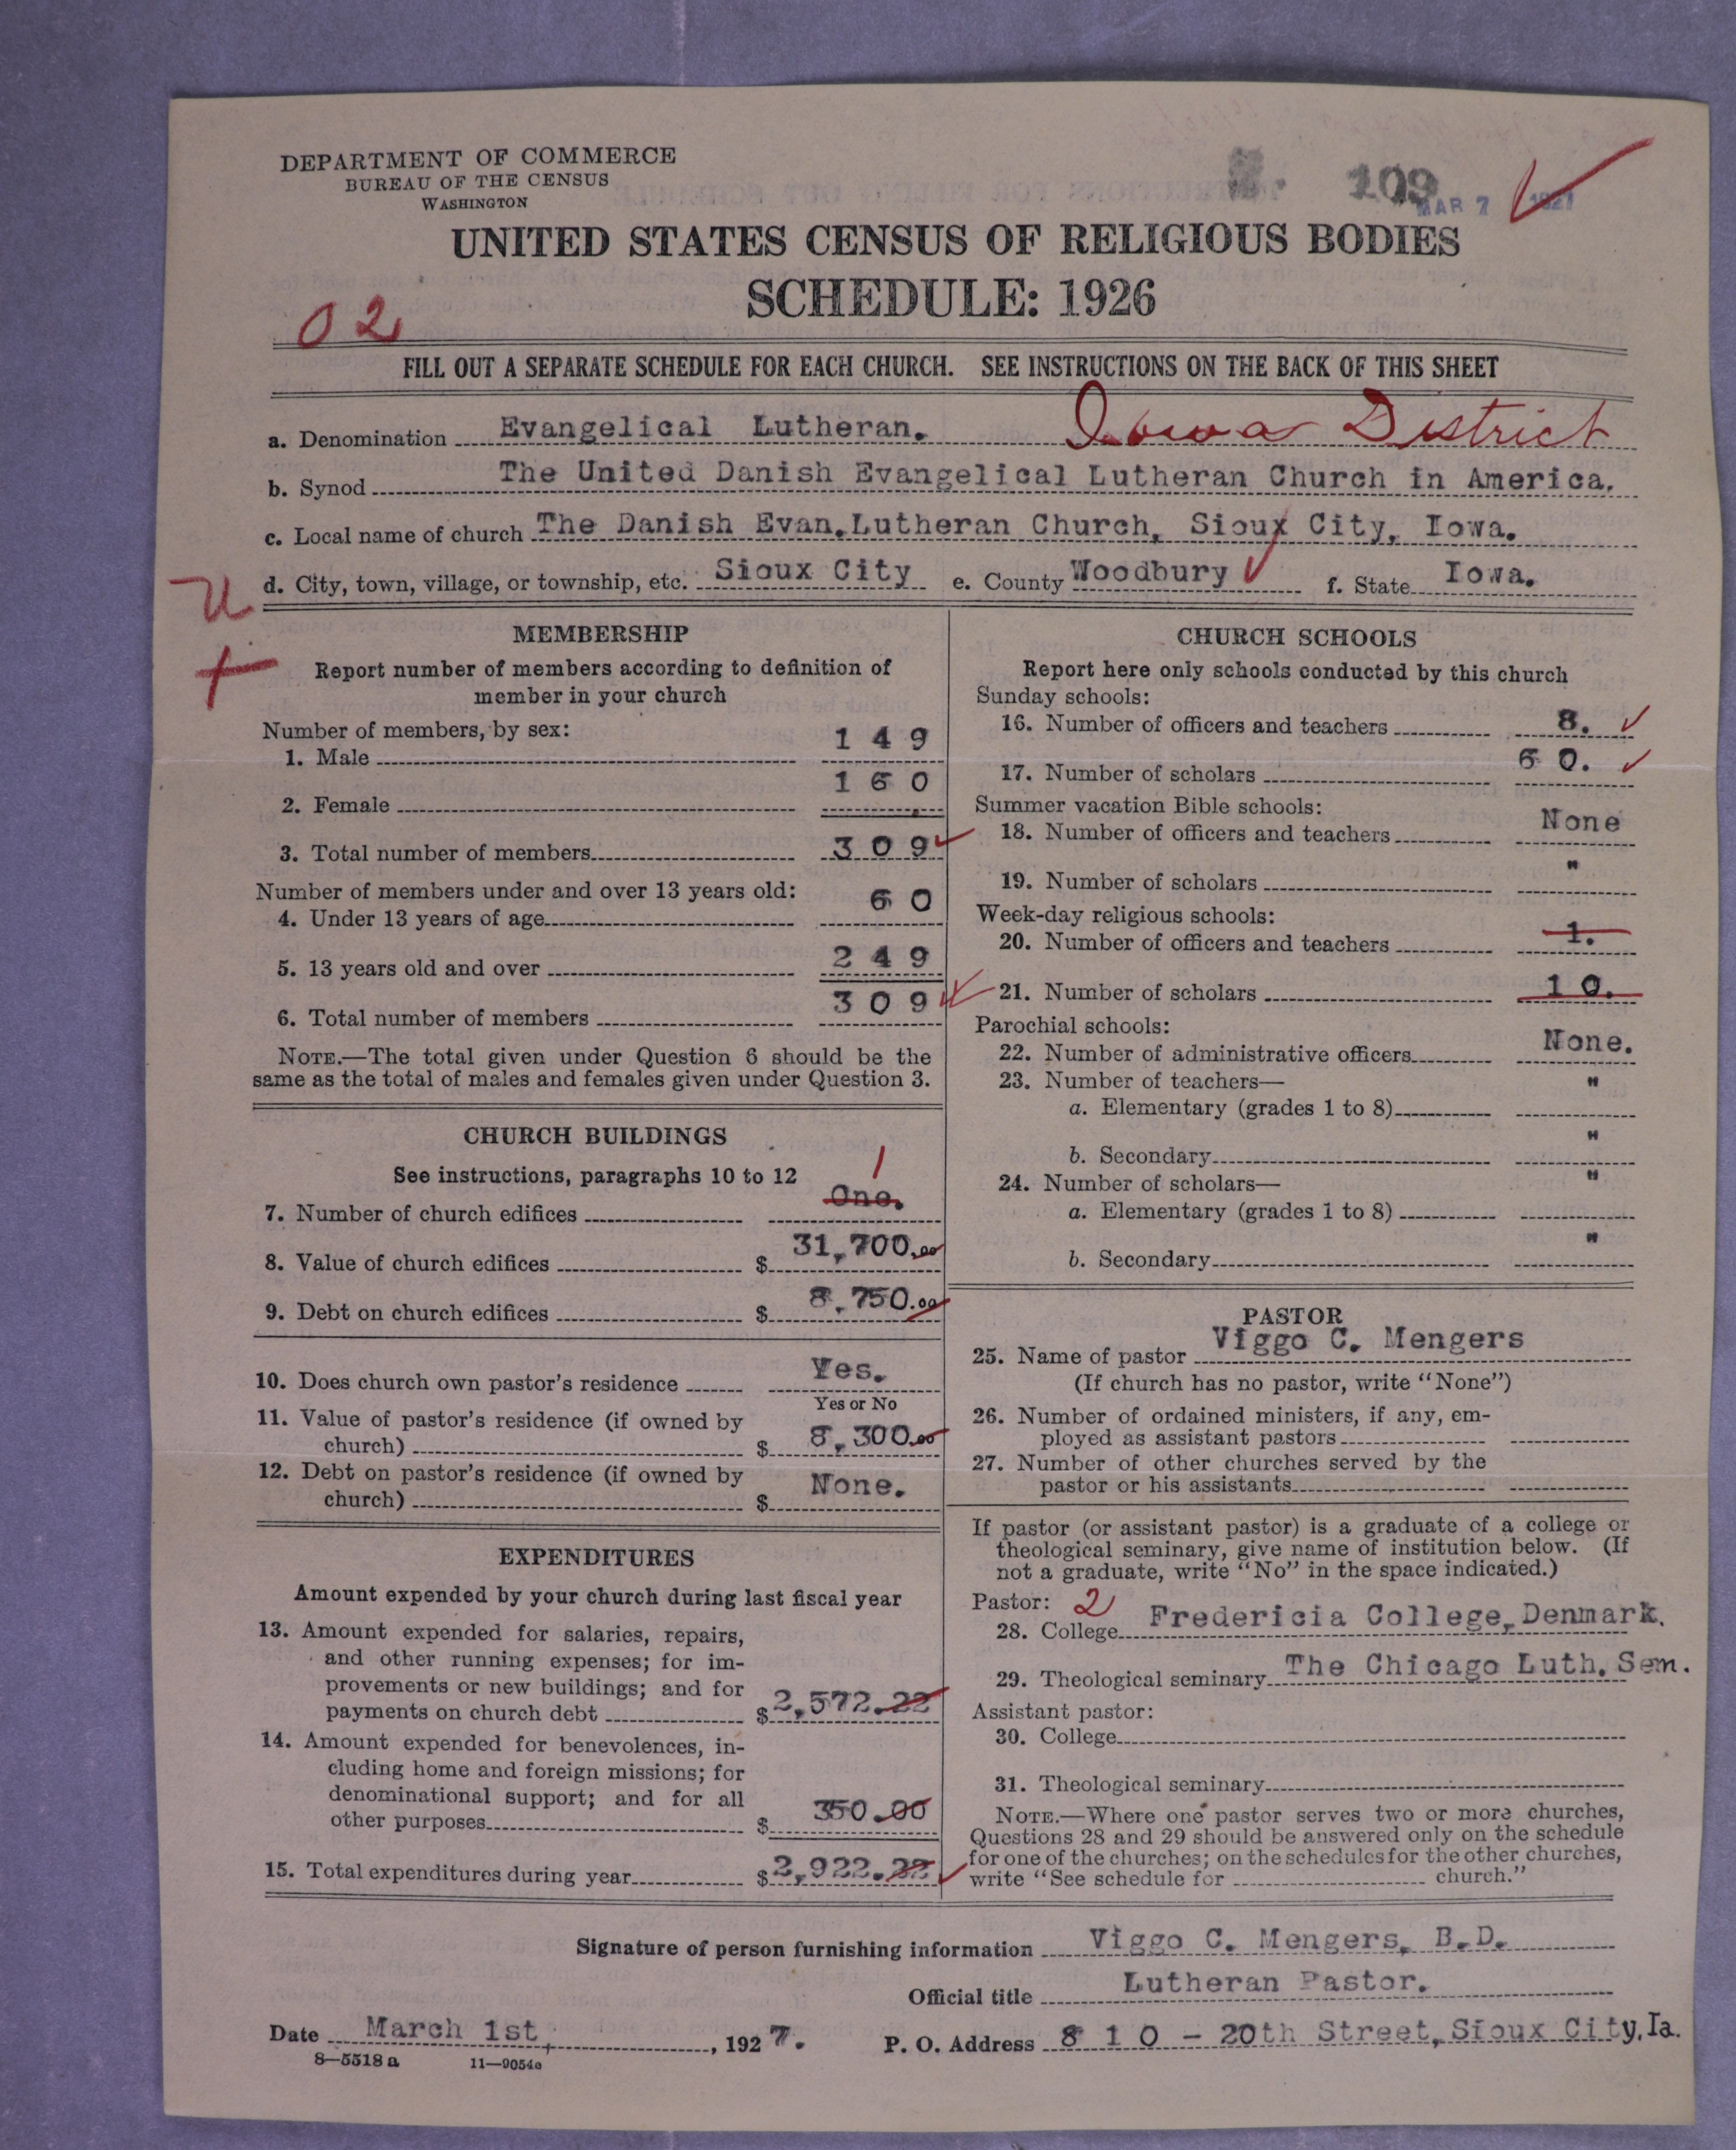 DEPARTMENT OF COMMERCE
BUREAU OF THE CENSUS
WASHINGTON
109
MAR 7 1927
UNITED STATES CENSUS OF RELIGIOUS BODIES
SCHEDULE: 1926
02
FILL OUT A SEPARATE SCHEDULE FOR EACH CHURCH. SEE INSTRUCTIONS ON THE BACK OF THIS SHEET
a. Denomination Evangelical Lutheran. Iowa District
b. Synod The United Danish Evangelical Lutheran Church in America.
c. Local name of church The Danish Evan.Lutheran Church, Sioux City, Iowa.
d. City, town, village, or township, etc. Sioux City e. County Woodbury f. State Iowa.
U
MEMBERSHIP
Report number of members according to definition of
member in your church
Number of members, by sex:
1. Male 149
2. Female 160
3. Total number of members 309
Number of members under and over 13 years old:
4. Under 13 years of age 60
5. 13 years old and over 249
6. Total number of members 309
NOTE.—The total given under Question 6 should be the
same as the total of males and females given under Question 3.
CHURCH BUILDINGS
See instructions, paragraphs 10 to 12
1
7. Number of church edifices One.
8. Value of church edifices $ 31,700.00
9. Debt on church edifices $ 8,750.00
10. Does church own pastor's residence Yes.
Yes or No
11. Value of pastor's residence (if owned by
church) $ 8,300.00
12. Debt on pastor's residence (if owned by
church) $ None.
EXPENDITURES
Amount expended by your church during last fiscal year
13. Amount expended for salaries, repairs,
and other running expenses; for im-
provements or new buildings; and for
payments on church debt $ 2,572.22
14. Amount expended for benevolences, in-
cluding home and foreign missions; for
denominational support; and for all
other purposes $ 350.00
15. Total expenditures during year $ 2,922.22
CHURCH SCHOOLS
Report here only schools conducted by this church
Sunday schools:
16. Number of officers and teachers 8.
17. Number of scholars 60.
Summer vacation Bible schools:
18. Number of officers and teachers None
19. Number of scholars "
Week-day religious schools:
20. Number of officers and teachers 1.
21. Number of scholars 10.
Parochial schools:
22. Number of administrative officers None.
23. Number of teachers— "
a. Elementary (grades 1 to 8)
b. Secondary "
24. Number of scholars— "
a. Elementary (grades 1 to 8)
b. Secondary "
PASTOR
25. Name of pastor Viggo C. Mengers
(If church has no pastor, write "None")
26. Number of ordained ministers, if any, em-
ployed as assistant pastors
27. Number of other churches served by the
pastor or his assistants
If pastor (or assistant pastor) is a graduate of a college or
theological seminary, give name of institution below. (If
not a graduate, write "No" in the space indicated.)
Pastor: 2
28. College Fredericia College, Denmark.
29. Theological seminary The Chicago Luth. Sem.
Assistant pastor:
30. College
31. Theological seminary
NOTE.—Where one pastor serves two or more churches,
Questions 28 and 29 should be answered only on the schedule
for one of the churches; on the schedules for the other churches,
write "See schedule for church."
Signature of person furnishing information Viggo C. Mengers, B.D.
Official title Lutheran Pastor.
Date March 1st, 1927. P. O. Address 810 - 20th Street, Sioux City, Ia.
8—5518 a 11—9054a